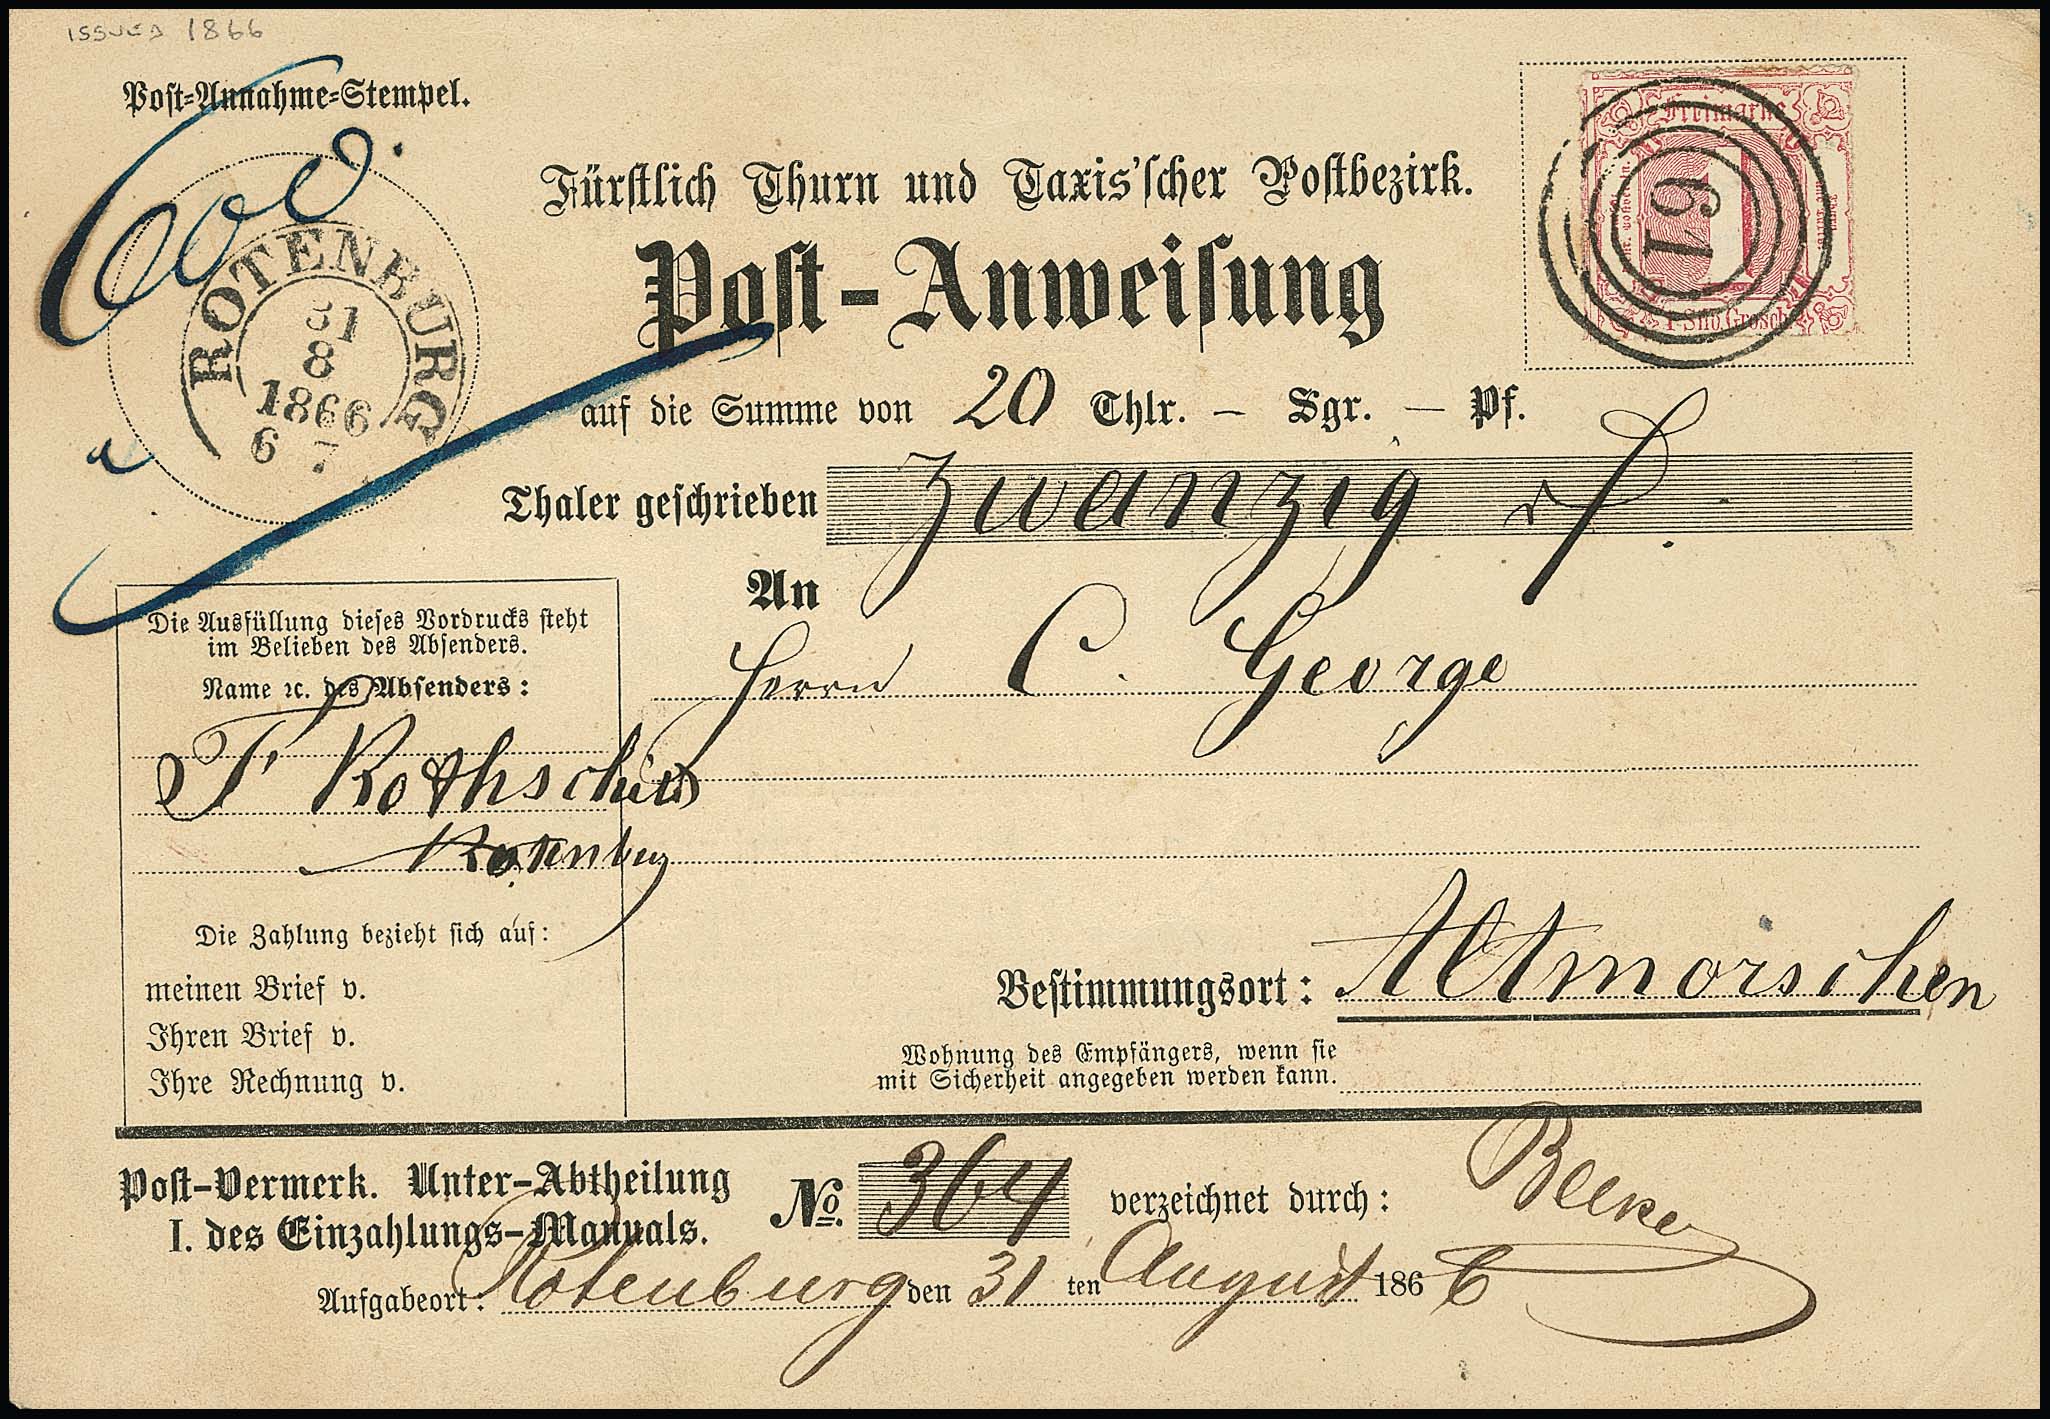 ISSUED 1866
Post-Annahme-Stempel.
ROTENBURG
31
8
1866
6 7
Fürstlich Thurn und Taxis'scher Postbezirk.
Post-Anweisung
Freimarke
1
1 Silb. Grosch.
61
auf die Summe von 20 Thlr. – Sgr. – Pf.
Thaler geschrieben Zwanzig
An
Herrn C. George
Die Ausfüllung dieses Vordrucks steht
im Belieben des Absenders.
Name ꝛc. des Absenders:
Rothschild
Rotenburg
Die Zahlung bezieht sich auf:
meinen Brief v.
Ihren Brief v.
Ihre Rechnung v.
Bestimmungsort: Altmorschen
Wohnung des Empfängers, wenn sie
mit Sicherheit angegeben werden kann.
Post-Vermerk. Unter-Abtheilung
I. des Einzahlungs-Manuals.
No. 364 verzeichnet durch:
Aufgabeort: Rotenburg den 31 ten August 1866